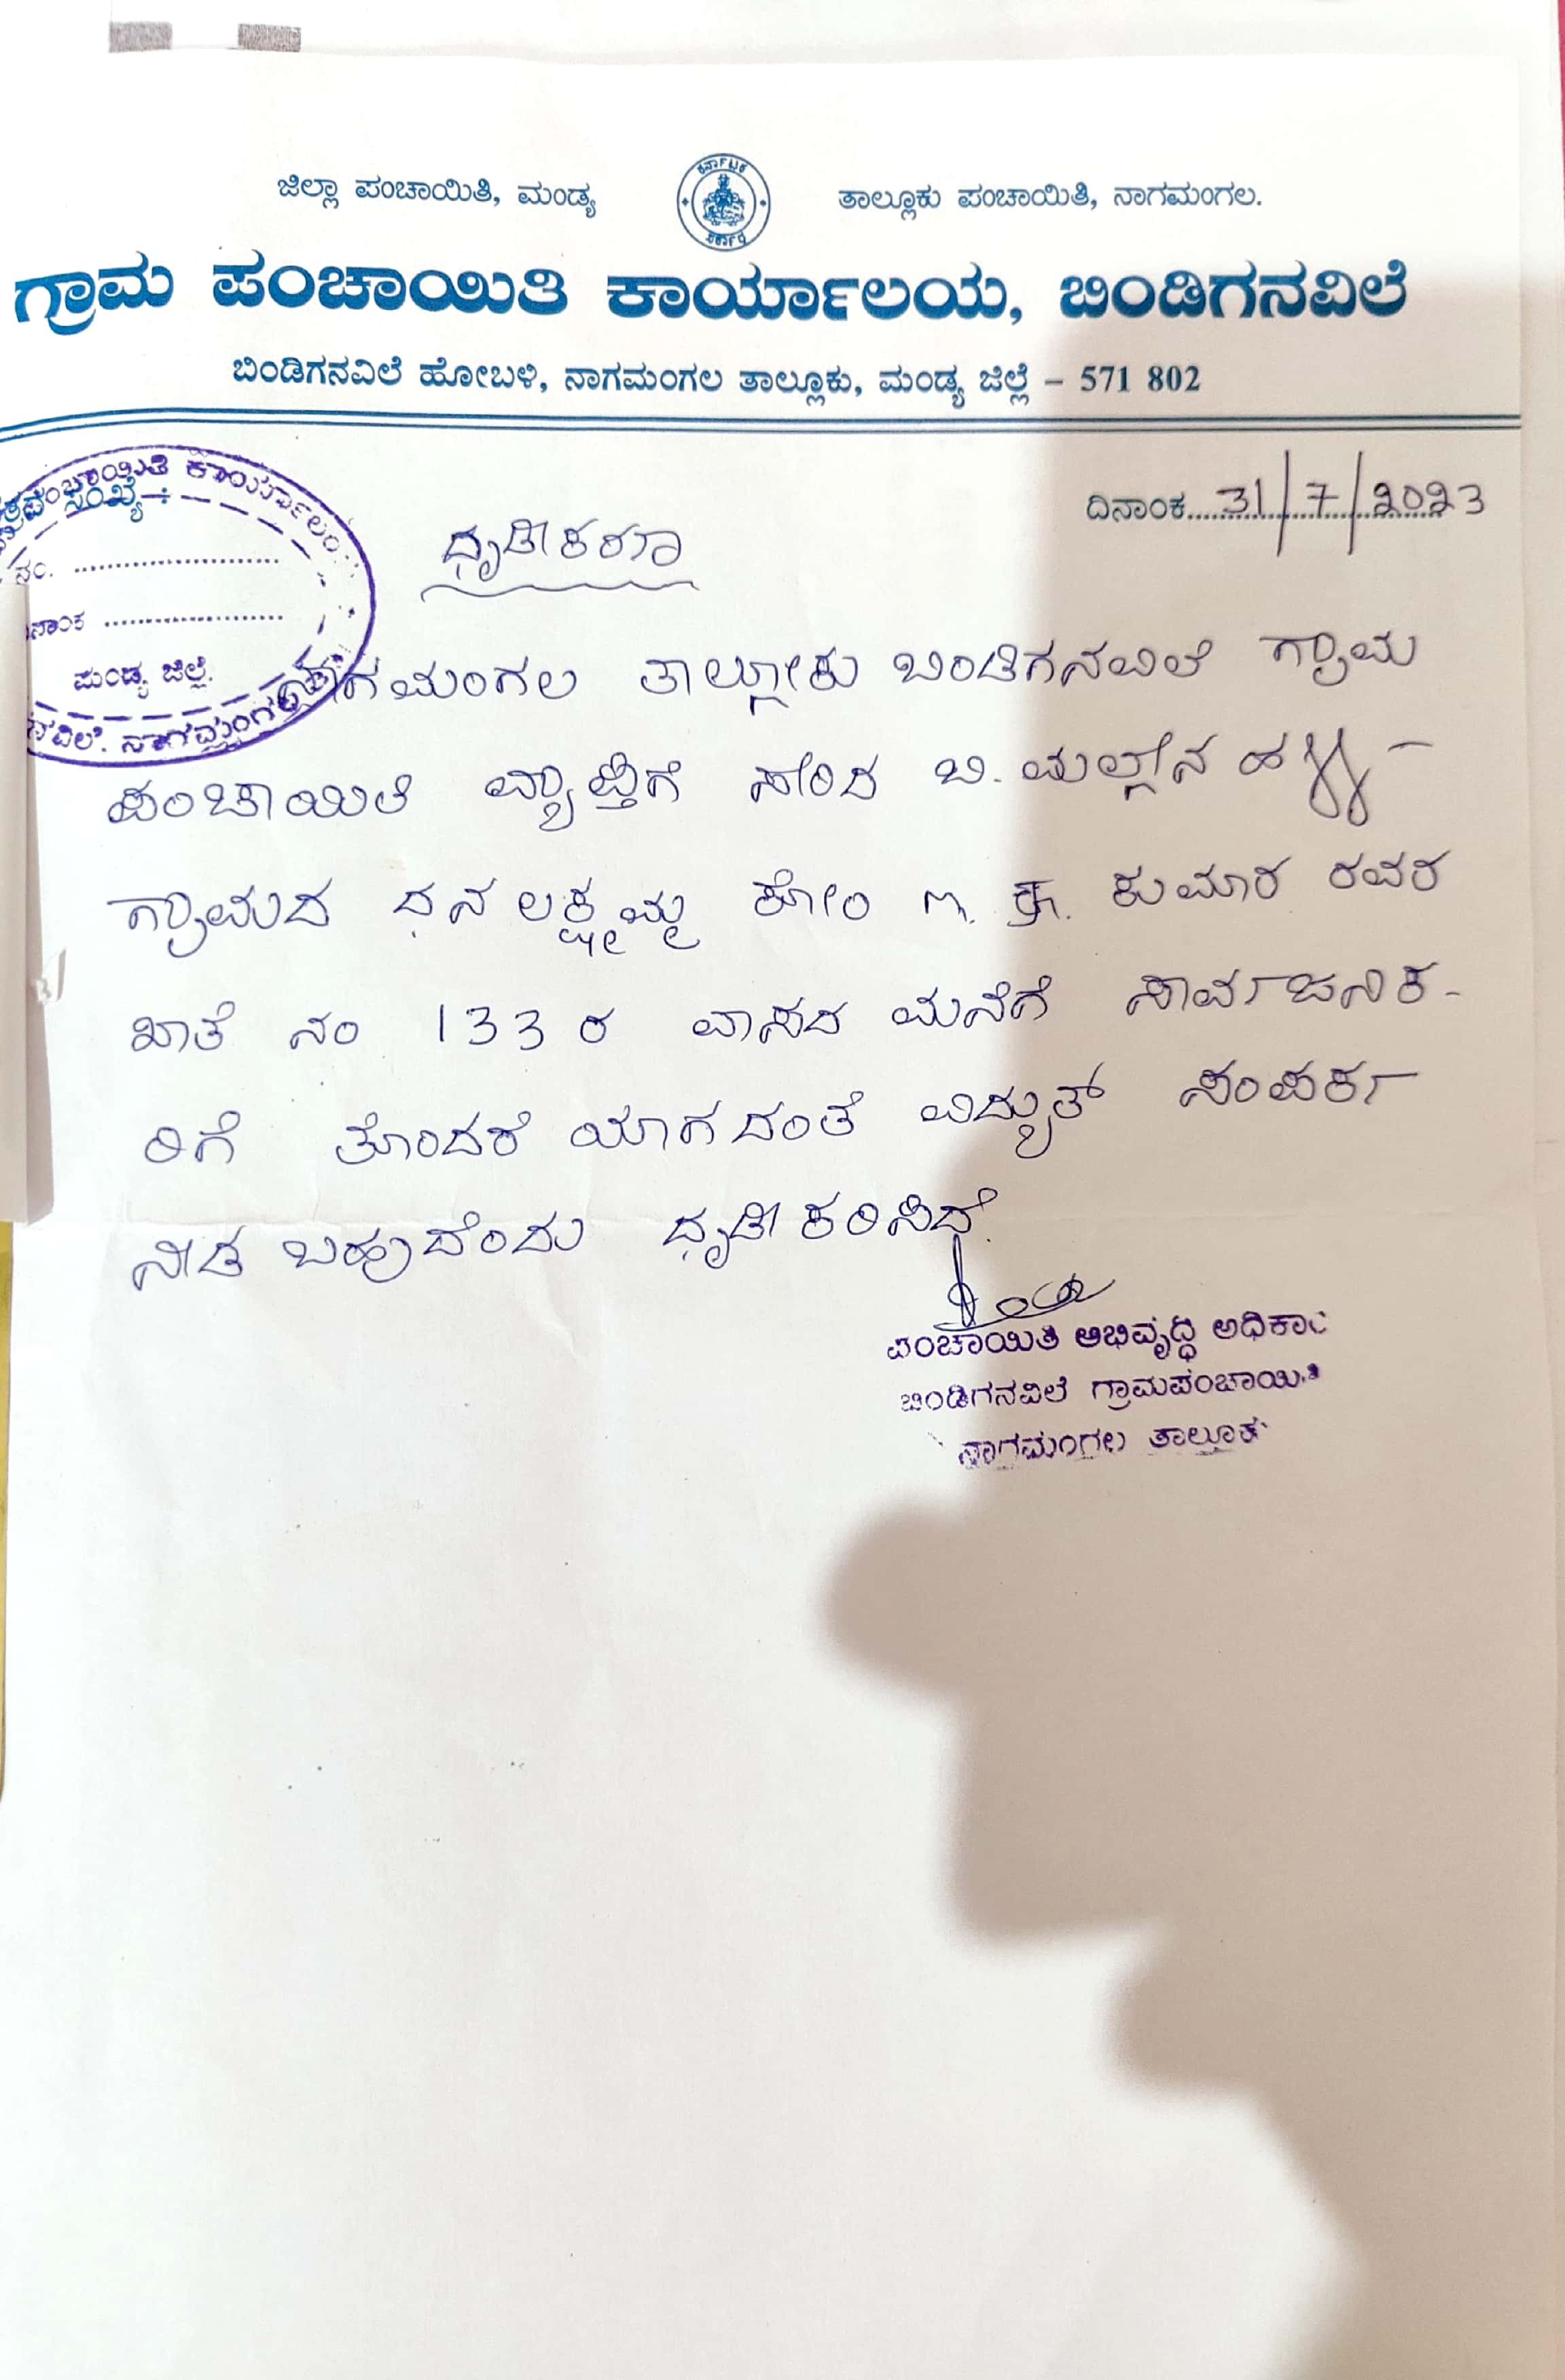 ಜಿಲ್ಲಾ ಪಂಚಾಯಿತಿ, ಮಂಡ್ಯ
ಕರ್ನಾಟಕ ಸರ್ಕಾರ
ತಾಲ್ಲೂಕು ಪಂಚಾಯಿತಿ, ನಾಗಮಂಗಲ.
ಗ್ರಾಮ ಪಂಚಾಯಿತಿ ಕಾರ್ಯಾಲಯ, ಬಿಂಡಿಗನವಿಲೆ
ಬಿಂಡಿಗನವಿಲೆ ಹೋಬಳಿ, ನಾಗಮಂಗಲ ತಾಲ್ಲೂಕು, ಮಂಡ್ಯ ಜಿಲ್ಲೆ – 571 802
ಪಂಚಾಯಿತಿ ಕಾರ್ಯಾಲಯ
ಸಂಖ್ಯೆ :
ನಂ. ....................
ದಿನಾಂಕ 31/7/2023
ಮಂಡ್ಯ ಜಿಲ್ಲೆ.
ಧೃಡೀಕರಣ
ನಾಗಮಂಗಲ ತಾಲ್ಲೂಕು ಬಿಂಡಿಗನವಿಲೆ ಗ್ರಾಮ
ಪಂಚಾಯಿತಿ ವ್ಯಾಪ್ತಿಗೆ ಸೇರಿದ ಬಿ. ಮಲ್ಲೇನ ಹಳ್ಳಿ -
ಗ್ರಾಮದ ಧನಲಕ್ಷ್ಮಮ್ಮ ಕೋಂ ಕುಮಾರ ರವರ
ಖಾತೆ ನಂ 133 ರ ವಾಸದ ಮನೆಗೆ ಸಾರ್ವಜನಿಕ-
ರಿಗೆ ತೊಂದರೆ ಯಾಗದಂತೆ ವಿದ್ಯುತ್ ಸಂಪರ್ಕ
ನೀಡ ಬಹುದೆಂದು ಧೃಡೀಕರಿಸಿದೆ.
ಪಂಚಾಯಿತಿ ಅಭಿವೃದ್ಧಿ ಅಧಿಕಾರಿ
ಬಿಂಡಿಗನವಿಲೆ ಗ್ರಾಮಪಂಚಾಯಿತಿ
ನಾಗಮಂಗಲ ತಾಲ್ಲೂಕು